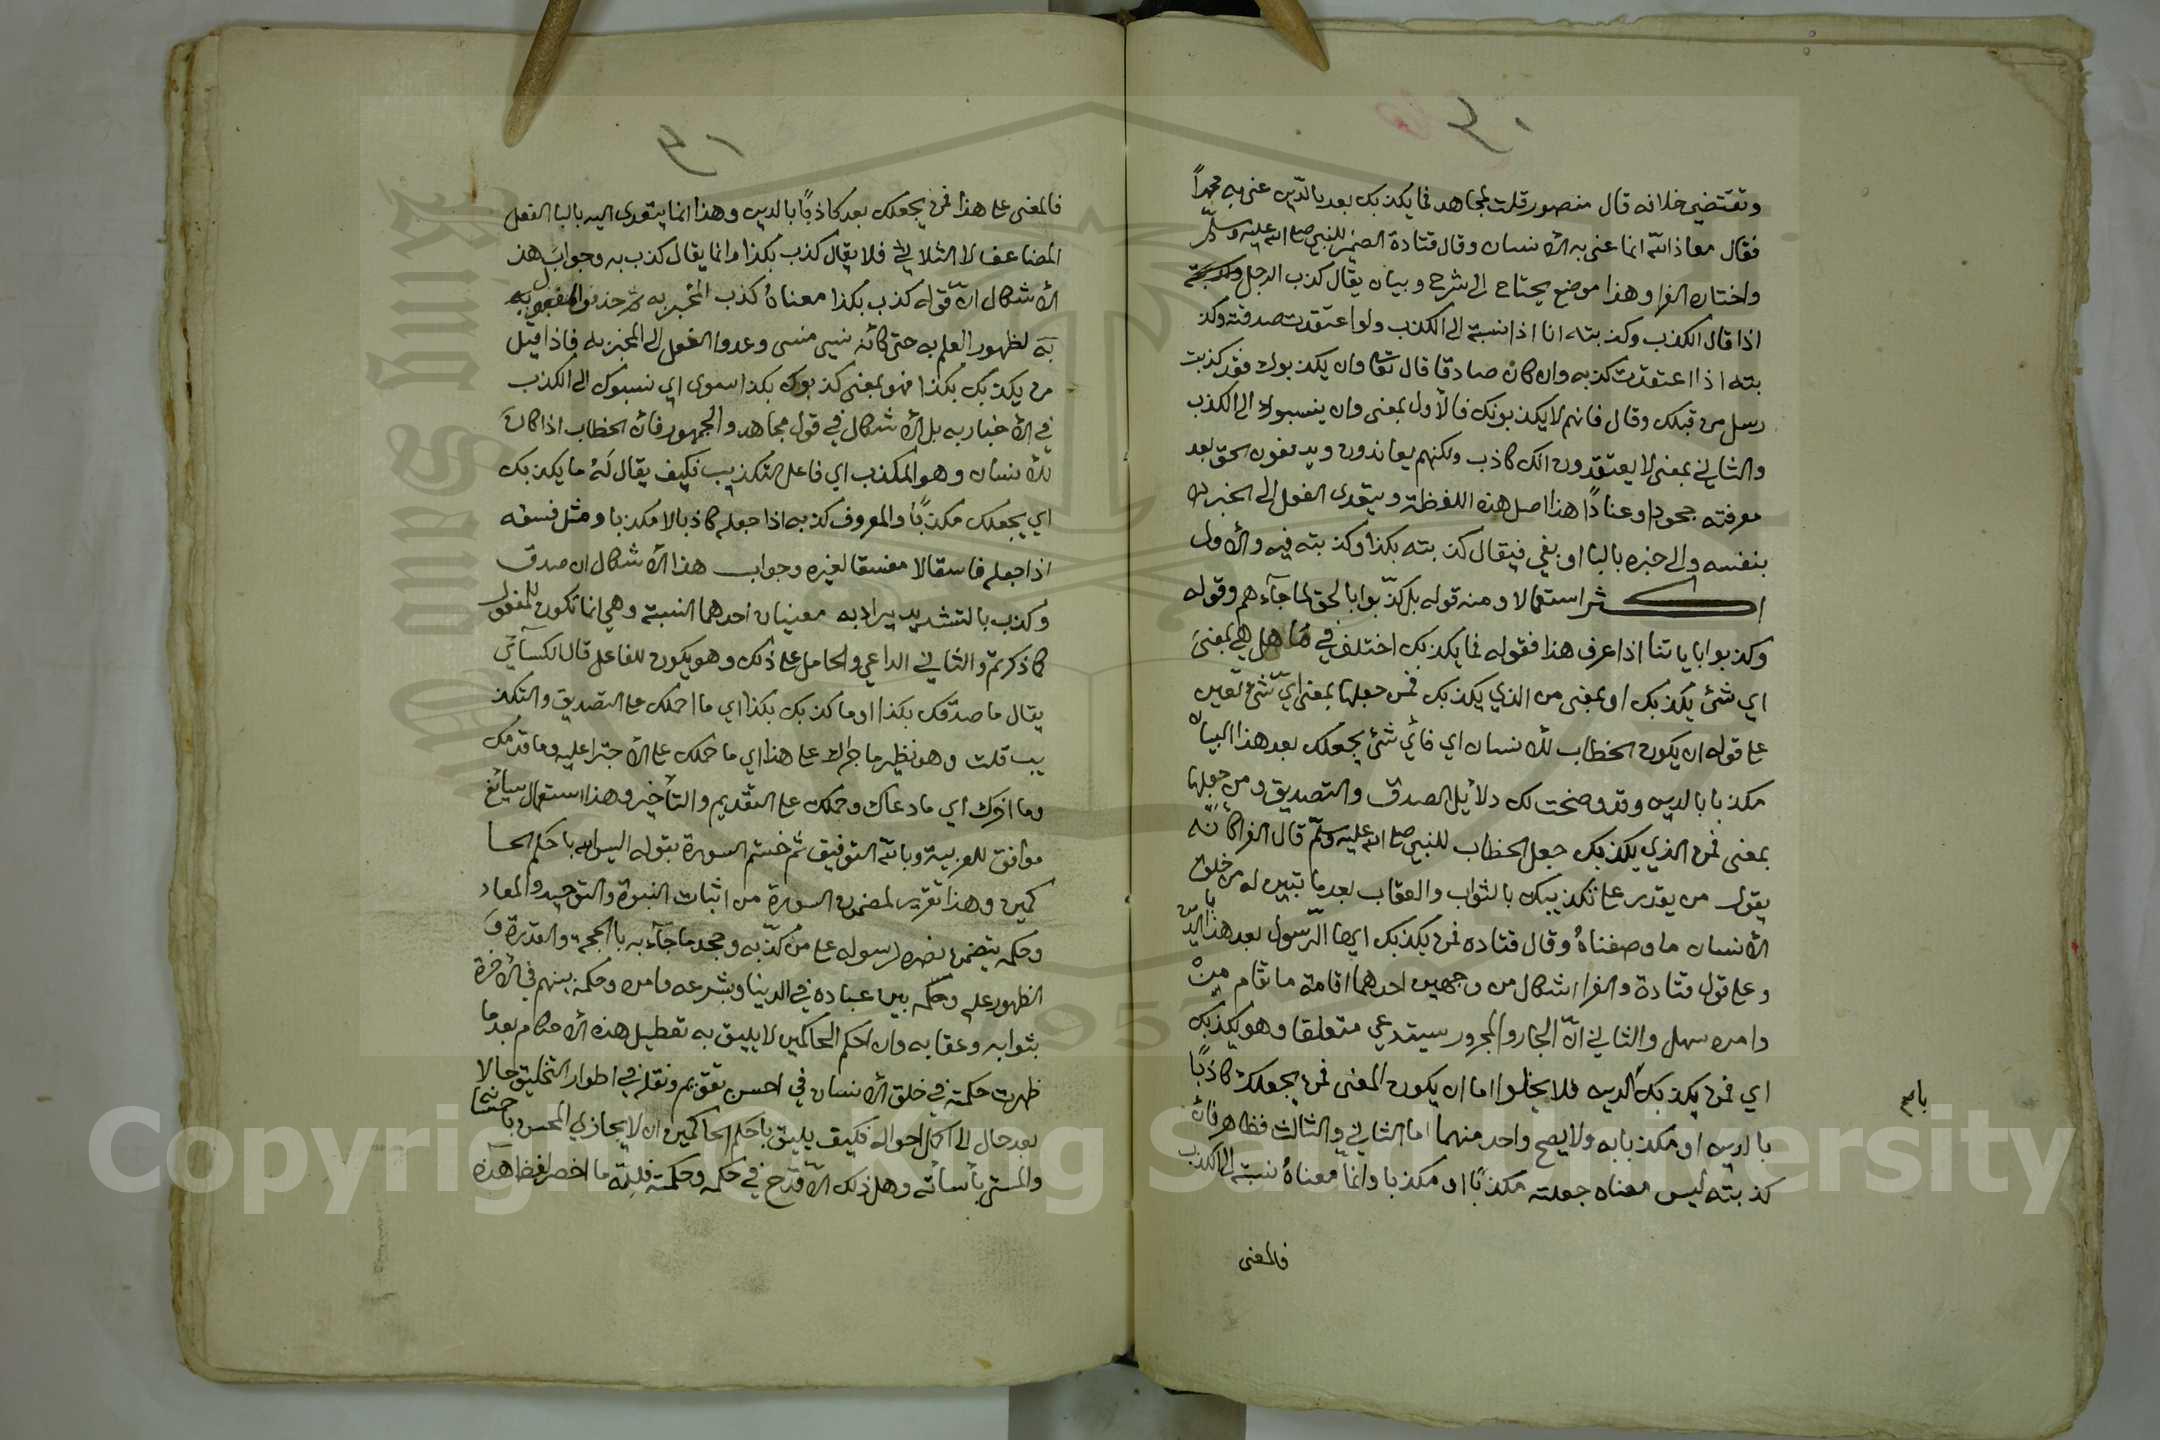 وتقتضي خلافه قال منصور قلت لمجاهد فما يكذبك بعد بالدين عنى به محمداً
فقال معاذ الله انما عنى به الانسان وقال قتادة الضمير للنبي صلى الله عليه وسلم
واختاره الفرا وهذا موضع يحتاج الى شرح وبيان يقال كذب الرجل
اذا قال الكذب وكذبته انا اذا نسبته الى الكذب ولو اعتقدت صدقه وكذ
بته اذا اعتقدت كذبه وان كان صادقا قال تعالى وان يكذبوك فقد كذبت
رسل من قبلك وقال فانهم لا يكذبونك فالاول بمعنى وان ينسبوك الى الكذب
والثاني بمعنى لا يعتقدون انك كاذب ولكنهم يعاندون ويدفعون الحق بعد
معرفته جحودا وعنادًا هذا اصل هذه اللفظة ويتعدى الفعل الى المخبر
بنفسه والى خبره بالبا او بفي فيقال كذبته بكذا وكذبته فيه والاول
اكثر استعمالا ومنه قوله بل كذّبوا بالحق لما جآءهم وقوله
وكذبوا باياتنا اذا عرف هذا فقوله فما يكذبك اختلف في مَا هل هي بمعنى
اي شئ يكذبك او بمعنى من الذي يكذبك فمن جعلها بمعنى ايّ شئ تعين
على قوله ان يكون الخطاب للانسان اي فأي شئ يجعلك بعد هذا البيان
مكذبا بالدين وقد وضحت لك دلائل الصدق والتصديق ومن جعلها
بمعنى فمن الذي يكذبك جعل الخطاب للنبي صلى الله عليه وسلّم قال الفرا كانّه
يقول من يقدر على تكذيبك بالثواب والعقاب بعد ما تبين له من خلق
الانسان ما وصفناهُ وقال قتاده فمن يكذبك ايها الرّسول بعد هذا بالدين
وعلى قول قتادة والفرا اشكال من وجهين احدهما اقامة ما مقام مِنْ
وامره سهل والثاني انّ الجار والمجرور يستدعي متعلقا وهو يكذبك
اي فمن يكذبك بالدين فلا يخلوا اما ان يكون المعنى فمن يجعلك كاذبًا
بالدين او مكذبا به ولا يصح واحد منهما اما الثاني والثالث فظاهر فان
كذبته ليس معناه جعلته مكذبًا او مكذبا وانما معناهُ نسبته الى الكذب
فالمعنى
فالمعنى على هذا فمن يجعلك بعد كاذبًا بالدين وهذا انما يتعدى اليه بالبا الفعل
المضاعف لا الثلاثي فلا يقال كذب بكذا وانما يقال كذب به وجواب هذ
الاشكال انّ قوله كذب بكذا معناهُ كذب المخبر به ثم حذف المفعول به
به لظهور العلم به حتى كانه نسي منسى وعدوا الفعل الى المخبر به فاذا قيل
من يكذبك بكذا فهو بمعنى كذبوك بكذا سوى اي نسبوك الى الكذب
في الاخبار به بل الاشكال في قول مجاهد والجمهور فان الخطاب اذا كانَ
للانسان وهو المكذب اي فاعل التكذيب فكيف يقال لهُ ما يكذبك
اي يجعلك مكذبًا والمعروف كذبه اذا جعله كاذبا لا مكذبا ومثل فسقه
اذا جعله فاسقا لا مفسقا لغيره وجواب هذا الاشكال ان صدق
وكذب بالتشديد يراد به معنيان احدهما النسبة وهي انما تكون للمفعول
كما ذكرتم والثاني الداعي والحامل على ذلك وهو يكون للفاعل قال الكسآئي
يقال ما صدّقك بكذا او ما كذبك بكذا اي ما احملك على التصديق والتكذ
يب قلت وهو نظير ما جراك على هذا اي ما حملك على الاجترا عليه وما قدمك
وما اخرك اي ما دعاك وحملك على التقديم والتأخير وهذا استعمال سائغ
موافق للعربية وبالله التوفيق ثم ختم السورة بقوله اليس الله باحكم الحا
كمين وهذا تقرير لمضمون السورة من اثبات النبوة والتوحيد والمعاد
وحكمه يتضمن نصره لرسوله على من كذّبه وجحد ما جآء به بالحجة والقدرة وَ
الظهور عليه وحكمه بين عباده في الدنيا وبشرعه وامره وحكمه بينهم في الاخرة
بثوابه وعقابه وان احكم الحاكمين لا يليق به تعطيل هذه الاحكام بعد ما
ظهرت حكمته في خلق الانسان في احسن تقويم ونقله في اطوار التخليق حالا
بعد حال الى اكمل احواله فكيف يليق باحكم الحاكمين ان لا يجازي المحسن باحسانه
والمسئ بأسائه وهل ذلك الا قدح في حكمه وحكمته فلله ما اخصر لفظ هذه
King Saud University
1957
Copyright © King Saud University